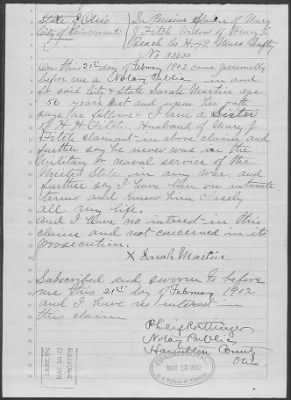 State of Ohio
City of Cincinnati
In Pension Claim of Mary
J. Fitch Widow of Henry H.
Co H-49 Mass Infty
No
On this 21st day of February 1902 came personally
before me a Notary Public in and
for said City and State Sarah Martin age
50 years past and upon her oath
says as follows - I am a Sister
of H H Fitch, Husband of Mary J
Fitch claimant above claim and
further say he never was in the
Military or naval service of the
United State in any war, and
further say I have been on intimate
terms and knew him closely
all my life.
and I have no intrest in this
claim and not concerned in its
prosecution.
X Sarah Martin
Subscribed and sworn to before
me this 21st day of February 1902
and I have no interest in
this claim
Notary Public
Hamilton County
Ohio